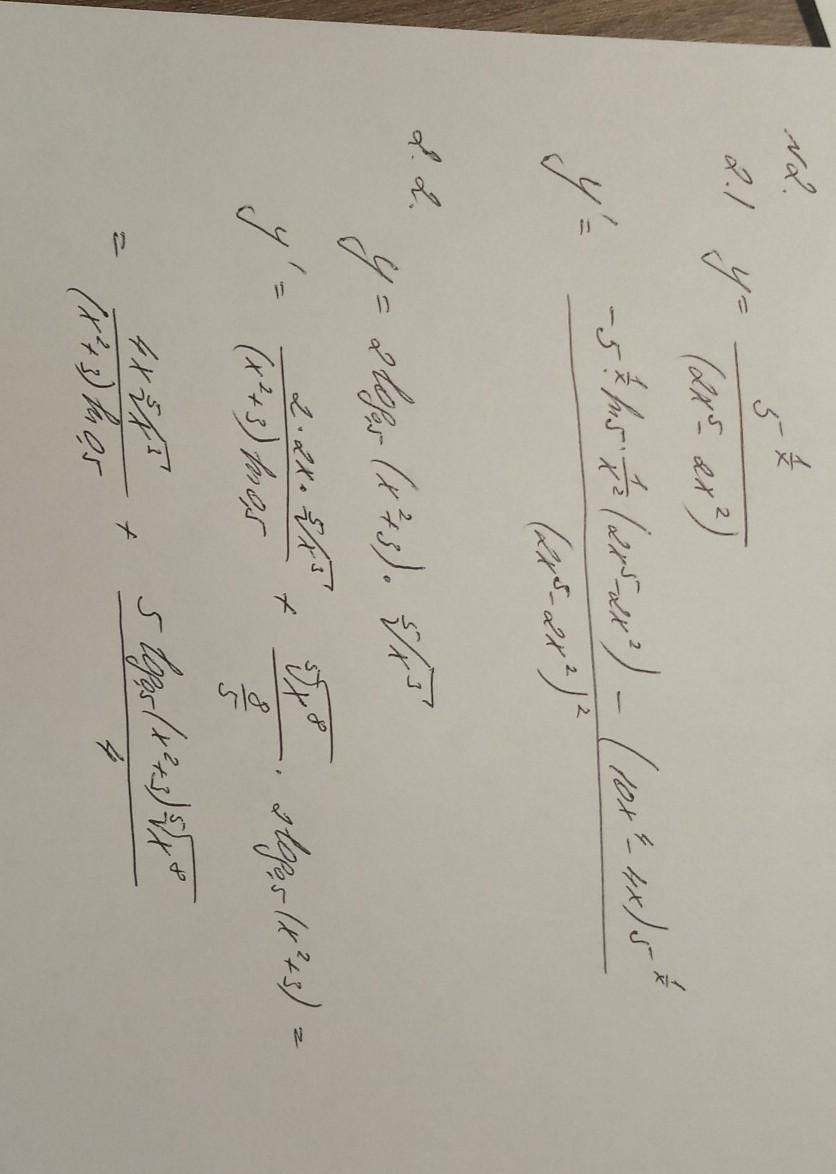 N2.
2.1 y = 5^(1/x) / (2x^5 - 2x^2)
y' = (-5^(1/x) · ln5 · 1/x^2 (2x^5 - 2x^2) - (10x^4 - 4x) 5^(1/x)) / (2x^5 - 2x^2)^2
2.2.
y = 2 log_0,5 (x^2 + 3) · ⁵√x^3
y' = (2 · 2x · ⁵√x^3) / ((x^2 + 3) ln 0,5) + ⁵√x^8 / (8/5) · 2 log_0,5 (x^2 + 3) =
= (4x ⁵√x^3) / ((x^2 + 3) ln 0,5) + (5 log_0,5 (x^2 + 3) ⁵√x^8) / 4